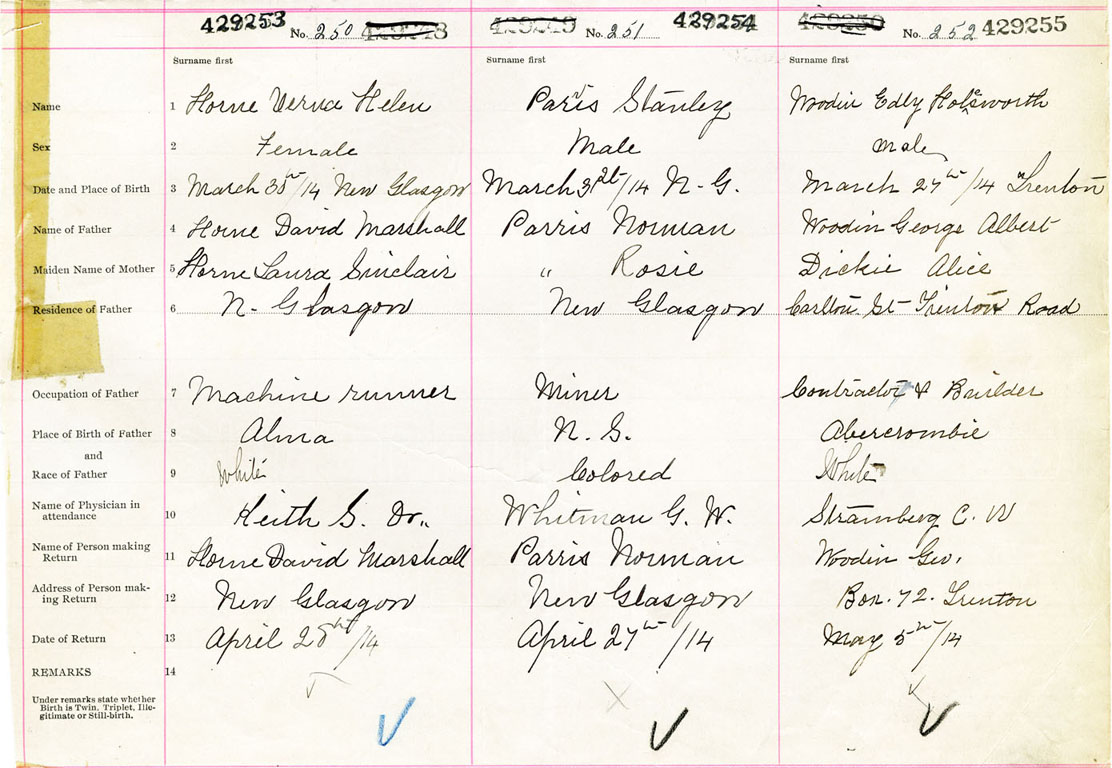 429253 No. 250 429248 429249 No. 251 429254 429250 No. 252 429255
Surname first Surname first Surname first
Name 1 Horne Verna Helen Parris Stanley Woodin Edly Holsworth
Sex 2 Female Male Male
Date and Place of Birth 3 March 30th/14 New Glasgow March 31st/14 N-G. March 27th/14 Trenton
Name of Father 4 Horne David Marshall Parris Norman Woodin George Albert
Maiden Name of Mother 5 Horne Laura Sinclair " Rosie Dickie Alice
Residence of Father 6 N- Glasgow New Glasgow Carlton St Trenton Road
Occupation of Father 7 Machine runner Miner Contractor & Builder
Place of Birth of Father 8 Alma N. G. Abercrombie
and
Race of Father 9 White Colored White
Name of Physician in
attendance 10 Keith S. Dr. Whitman G. W. Stramberg C. W
Name of Person making
Return 11 Horne David Marshall Parris Norman Woodin Geo.
Address of Person mak-
ing Return 12 New Glasgow New Glasgow Box. 72. Trenton
Date of Return 13 April 28th/14 April 27th/14 May 5th/14
REMARKS 14
Under remarks state whether
Birth is Twin, Triplet, Ille-
gitimate or Still-birth.